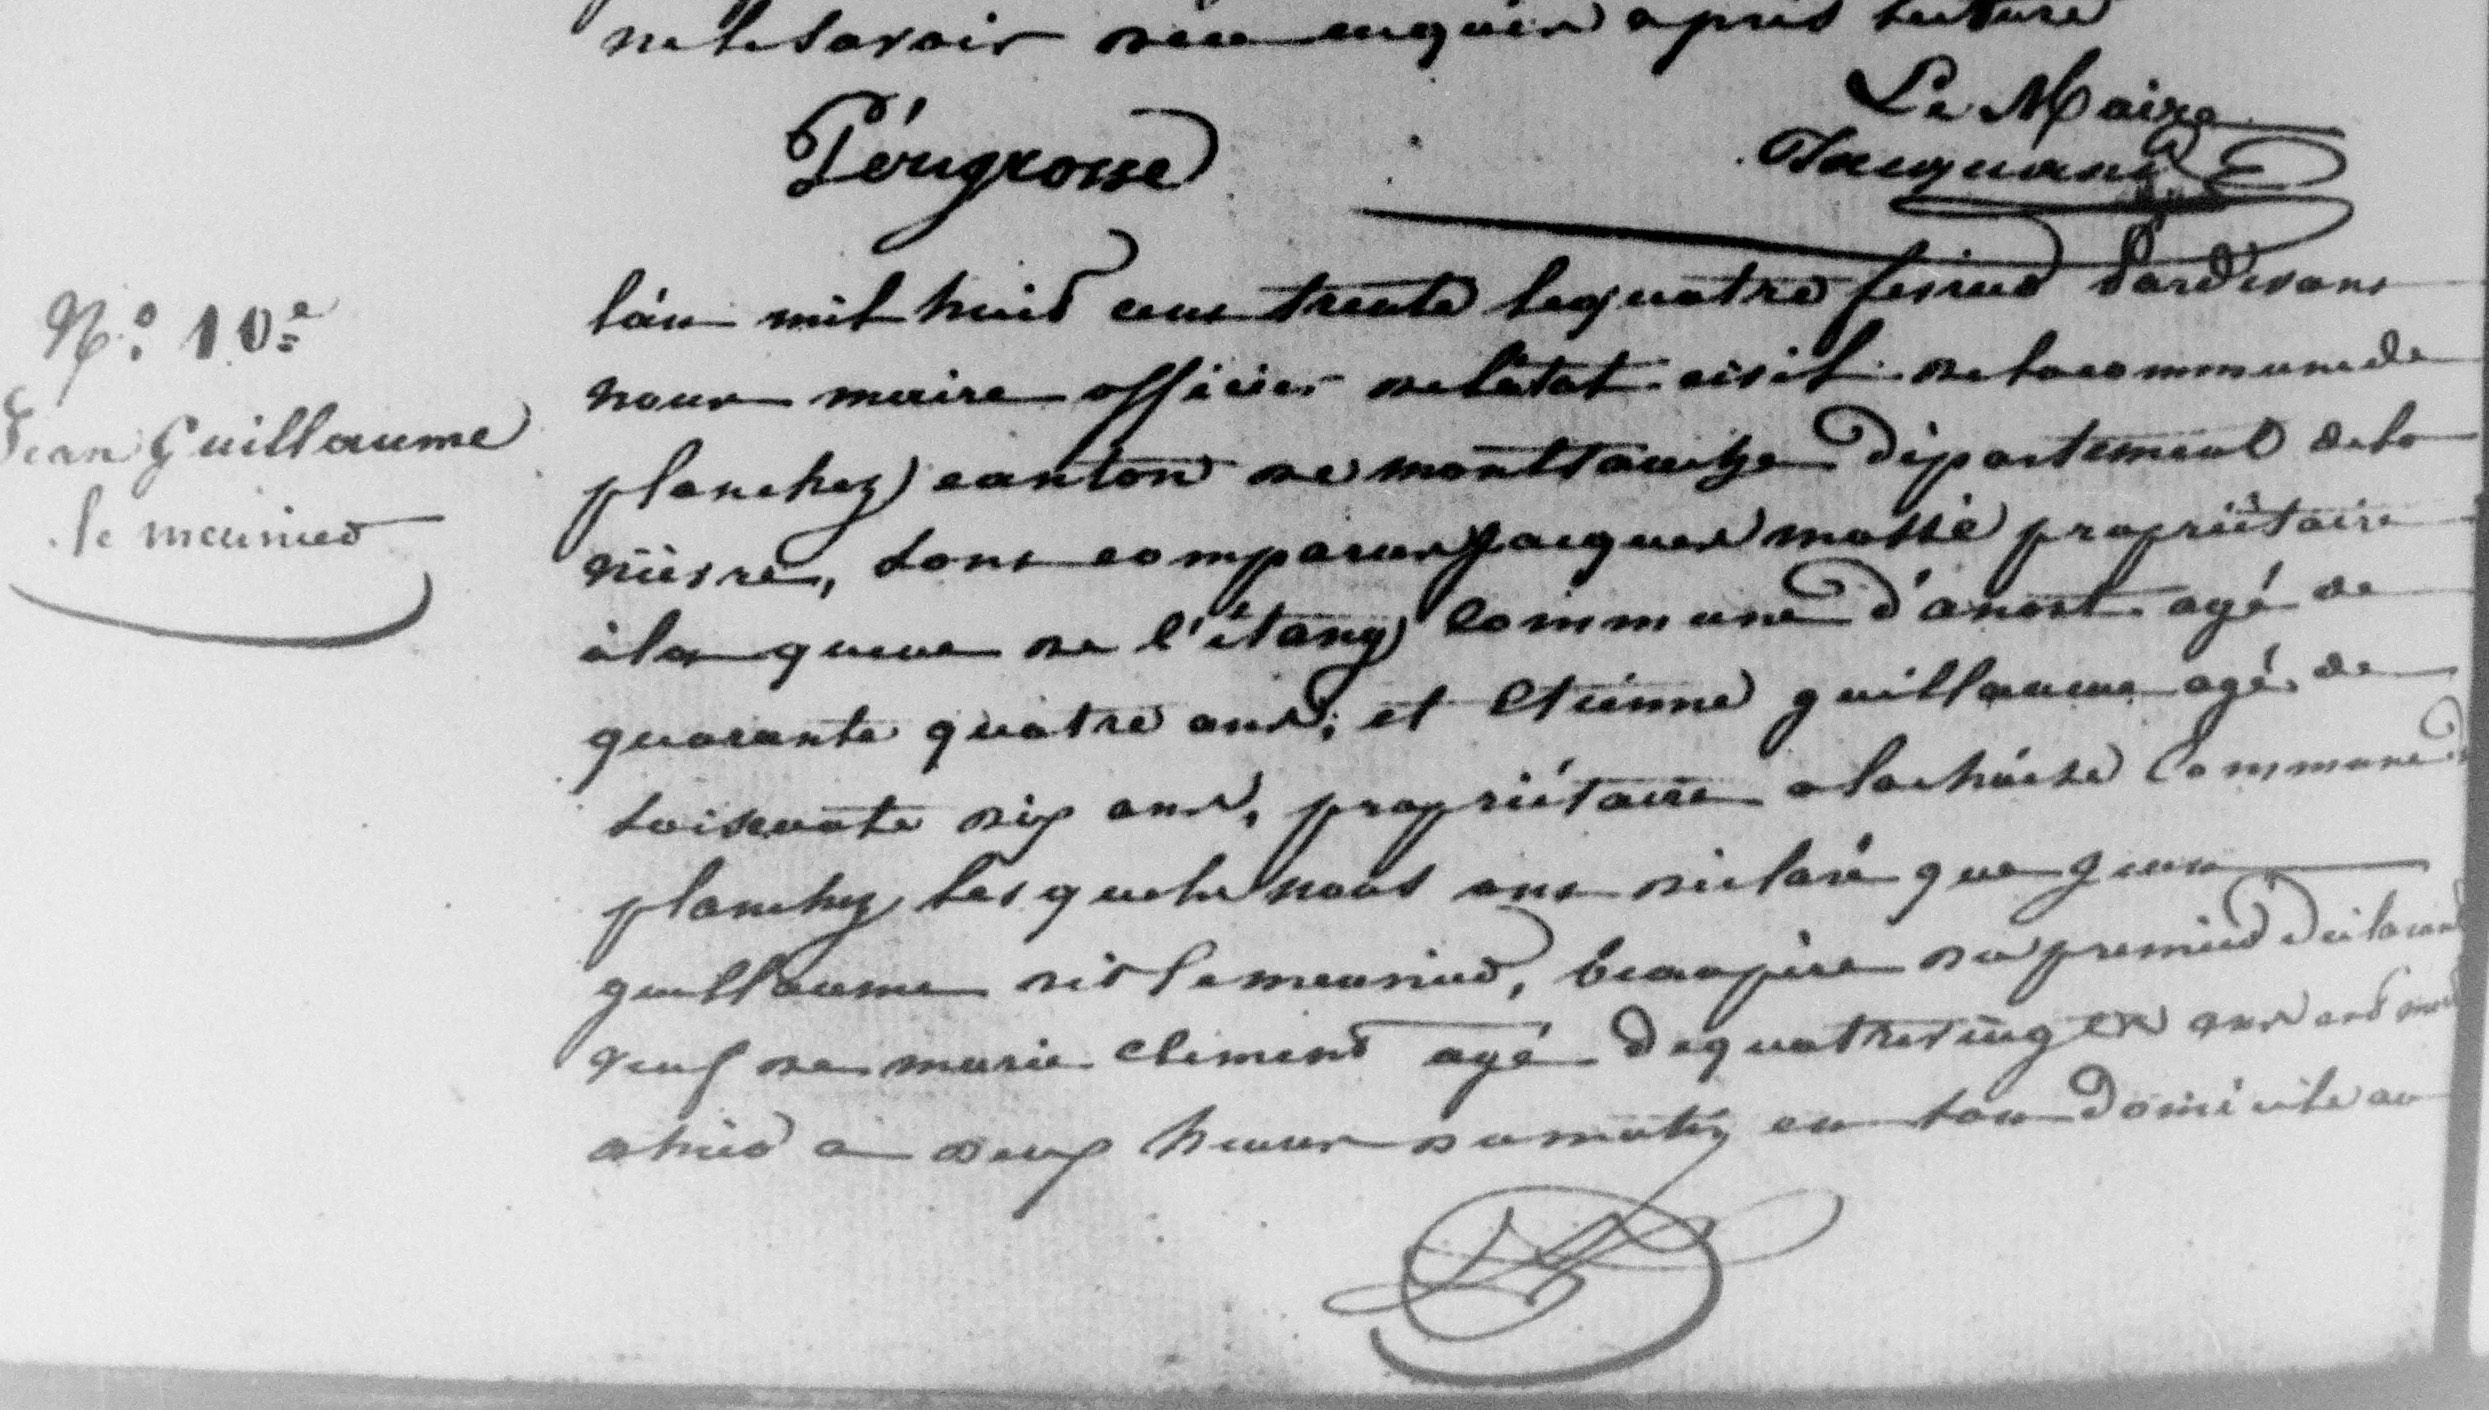 ne le savoir de ce enquis après lecture
Le Maire
Pérugrosse
N.o 10.e
Jean Guillaume
le meunier
l'an mil huit cent trente le quatre fevrier pardevant
nous maire officier de l'etat civil de la commune de
planchez canton de montsauche département de la
nièvre, sont comparus jacques massé propriétaire
à la queue de l'étang commune d'anost agé de
quarante quatre ans; et Etienne guillaume agé de
soisente six ans, propriétaire a la chaise Commune de
planchez lesquels nous ont déclaré que jean
guillaume dit le meunier, beaupère du premier déclarant
veuf de marie clement agé de quatrevingt ans est mort
a hier a deux heures du matin en son domicile au